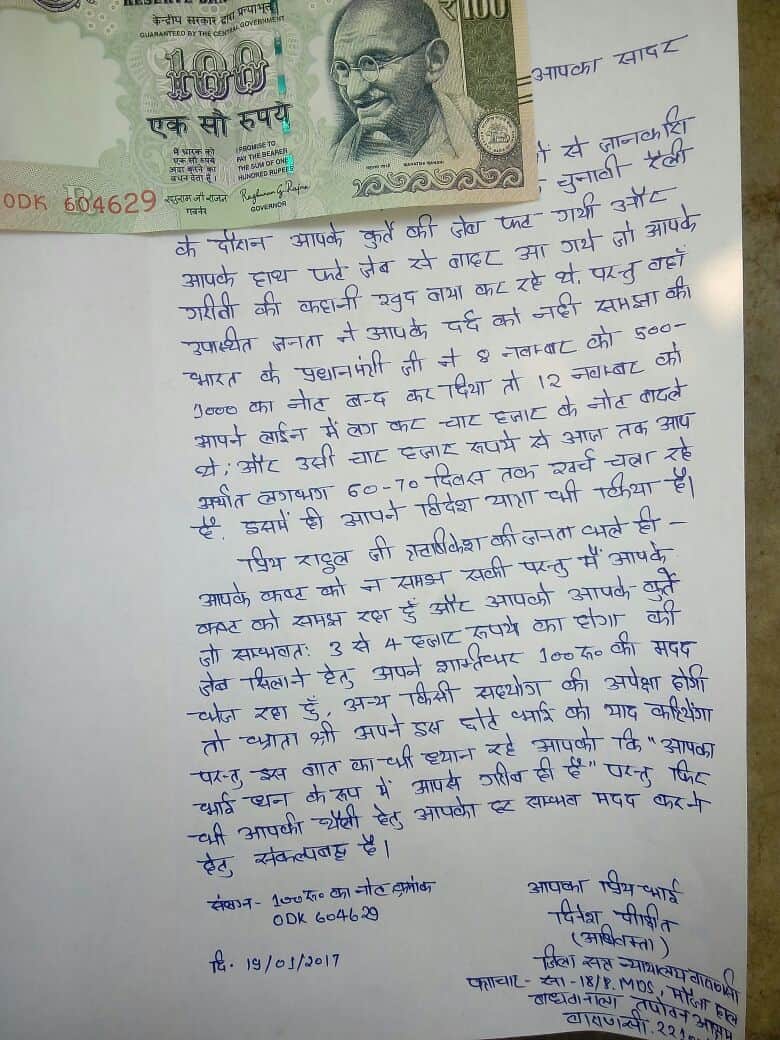 RESERVE BAN
केन्द्रीय सरकार द्वारा प्रत्याभूत
GUARANTEED BY THE CENTRAL GOVERNMENT
₹100
100
एक सौ रुपये
मैं धारक को
एक सौ रुपये
अदा करने का
वचन देता हूँ।
I PROMISE TO
PAY THE BEARER
THE SUM OF ONE
HUNDRED RUPEES
0DK 604629
रघुराम जी राजन
गवर्नर
Raghuram G. Rajan
GOVERNOR
महात्मा गांधी MAHATMA GANDHI
आपका सादर
से जानकारी
चुनावी रैली
के दौरान आपके कुर्ते की जेब फट गयी और
आपके हाथ फटे जेब से बाहर आ गये जो आपके
गरीबी की कहानी खुद बया कर रहे थे, परन्तु वहाँ
उपस्थित जनता ने आपके दर्द को नही समझा की
भारत के प्रधानमंत्री जी ने 8 नवम्बर को 500-
1000 का नोट बन्द कर दिया तो 12 नवम्बर को
आपने लाईन में लग कर चार हजार के नोट बदले
थे, और उसी चार हजार रूपये से आज तक आप
अर्थात लगभग 60-70 दिवस तक खर्च चला रहे
हैं, इसमें ही आपने विदेश यात्रा भी किया है।
प्रिय राहुल जी ऋषिकेश की जनता भले ही -
आपके कष्ट को न समझ सकी परन्तु मैं आपके
कष्ट को समझ रहा हुँ और आपको आपके कुर्ते
जो सम्भवतः 3 से 4 हजार रूपये का होगा की
जेब सिलाने हेतु अपने शक्तिभर 100 रू० की मदद
भेज रहा हुँ, अन्य किसी सहयोग की अपेक्षा होगी
तो भ्राता श्री अपने इस छोटे भाई को याद करियेगा
परन्तु इस बात का भी ध्यान रहे आपको कि "आपका
भाई धन के रूप में आपसे गरीब ही है" परन्तु फिर
भी आपकी थैली हेतु आपको हर सम्भव मदद करने
हेतु संकल्पबद्ध है।
संलग्न - 100 रू० का नोट क्रमांक
0DK 604629
दि. 19/01/2017
आपका प्रिय भाई
दिनेश दीक्षित
(अधिवक्ता)
जिला सत्र न्यायालय वाराणसी
पत्राचार - सा - 18/8. MDS, मौजा हाल
तपोवन आश्रम
वाराणसी. 221